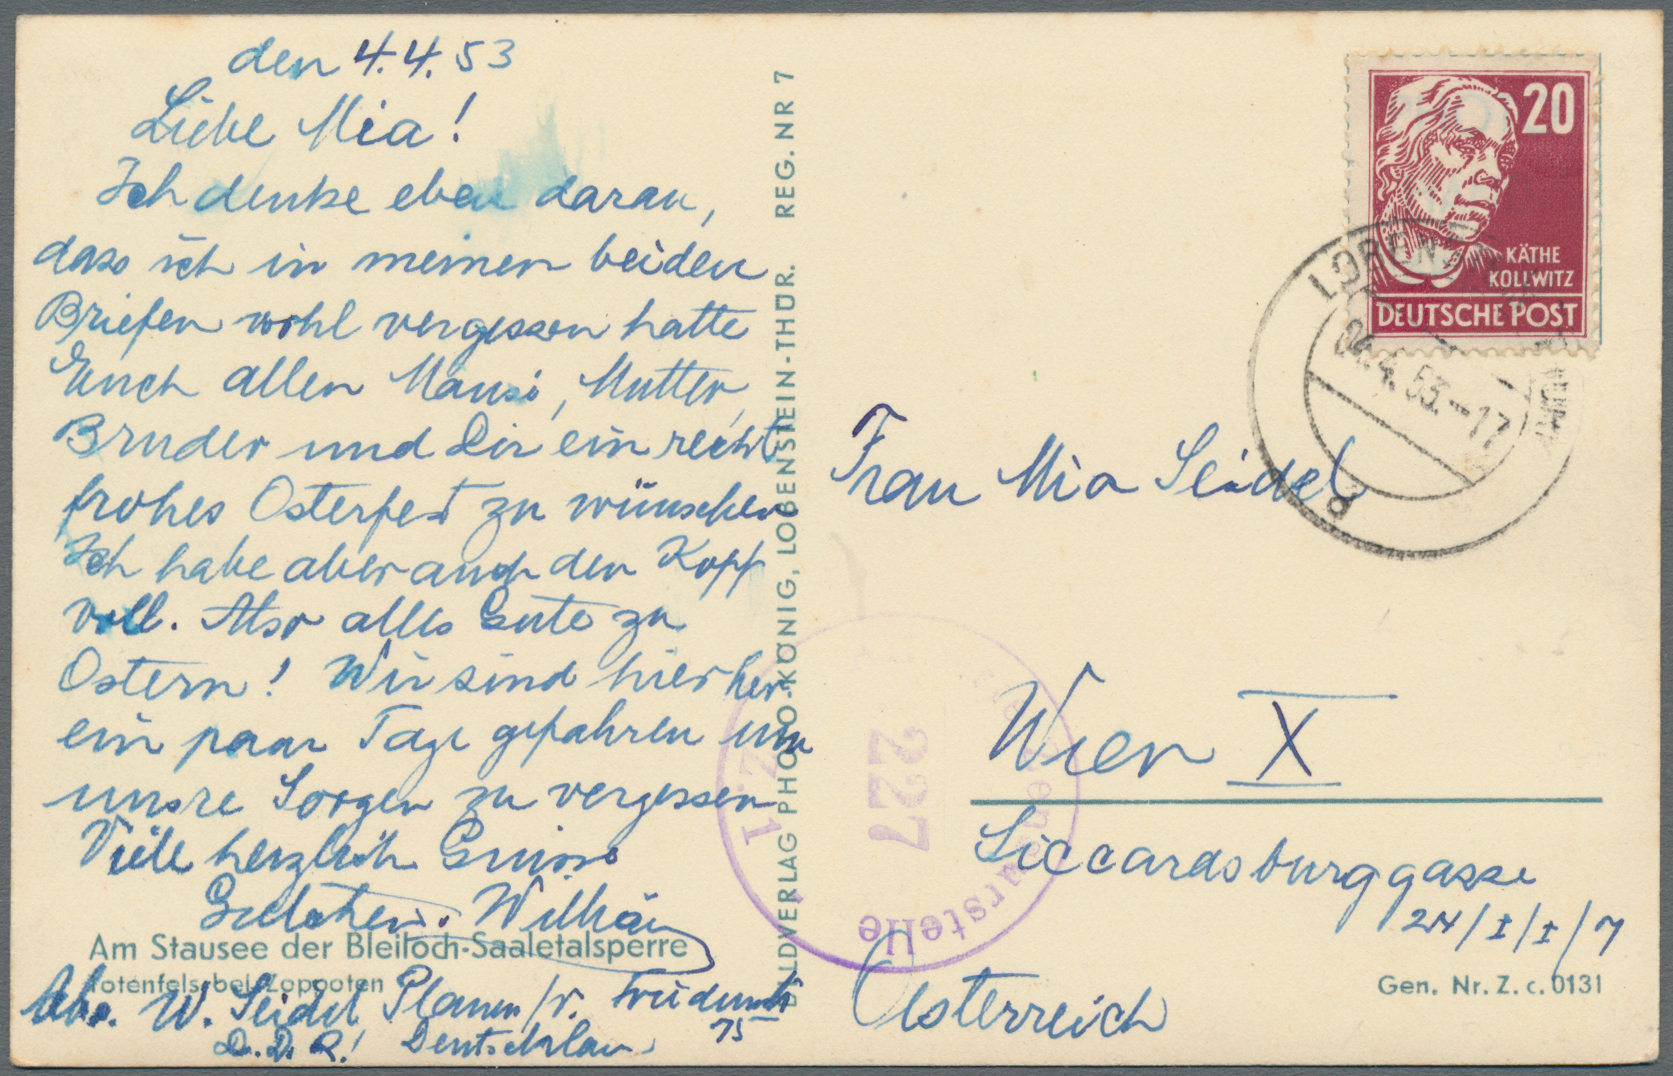 den 4.4.53
Liebe Mia!
Ich denke eben daran,
dass ich in meinen beiden
Briefen wohl vergessen hatte
Euch allen Mausi, Mutter,
Bruder und Dir ein recht
frohes Osterfest zu wünschen
Ich habe aber auch den Kopf
voll. Also alles Gute zu
Ostern! Wir sind hierher
ein paar Tage gefahren um
unsre Sorgen zu vergessen
Viele herzlich Grüsse
Am Stausee der Bleiloch-Saaletalsperre
Totenfels bei Zoppoten
Abs. W. Seidel Plauen /V.
75
D.D.R! Deutschland
BILDVERLAG PHOTO-KÖNIG, LOBENSTEIN-THÜR. REG. NR 7
20
KÄTHE
KOLLWITZ
DEUTSCHE POST
04.4.53.-17
d
Frau Mia Seidel
Wien X
Siccardsburggasse
24/I/I/7
Österreich
Gen. Nr. Z. c. 0131
Zensurstelle
227